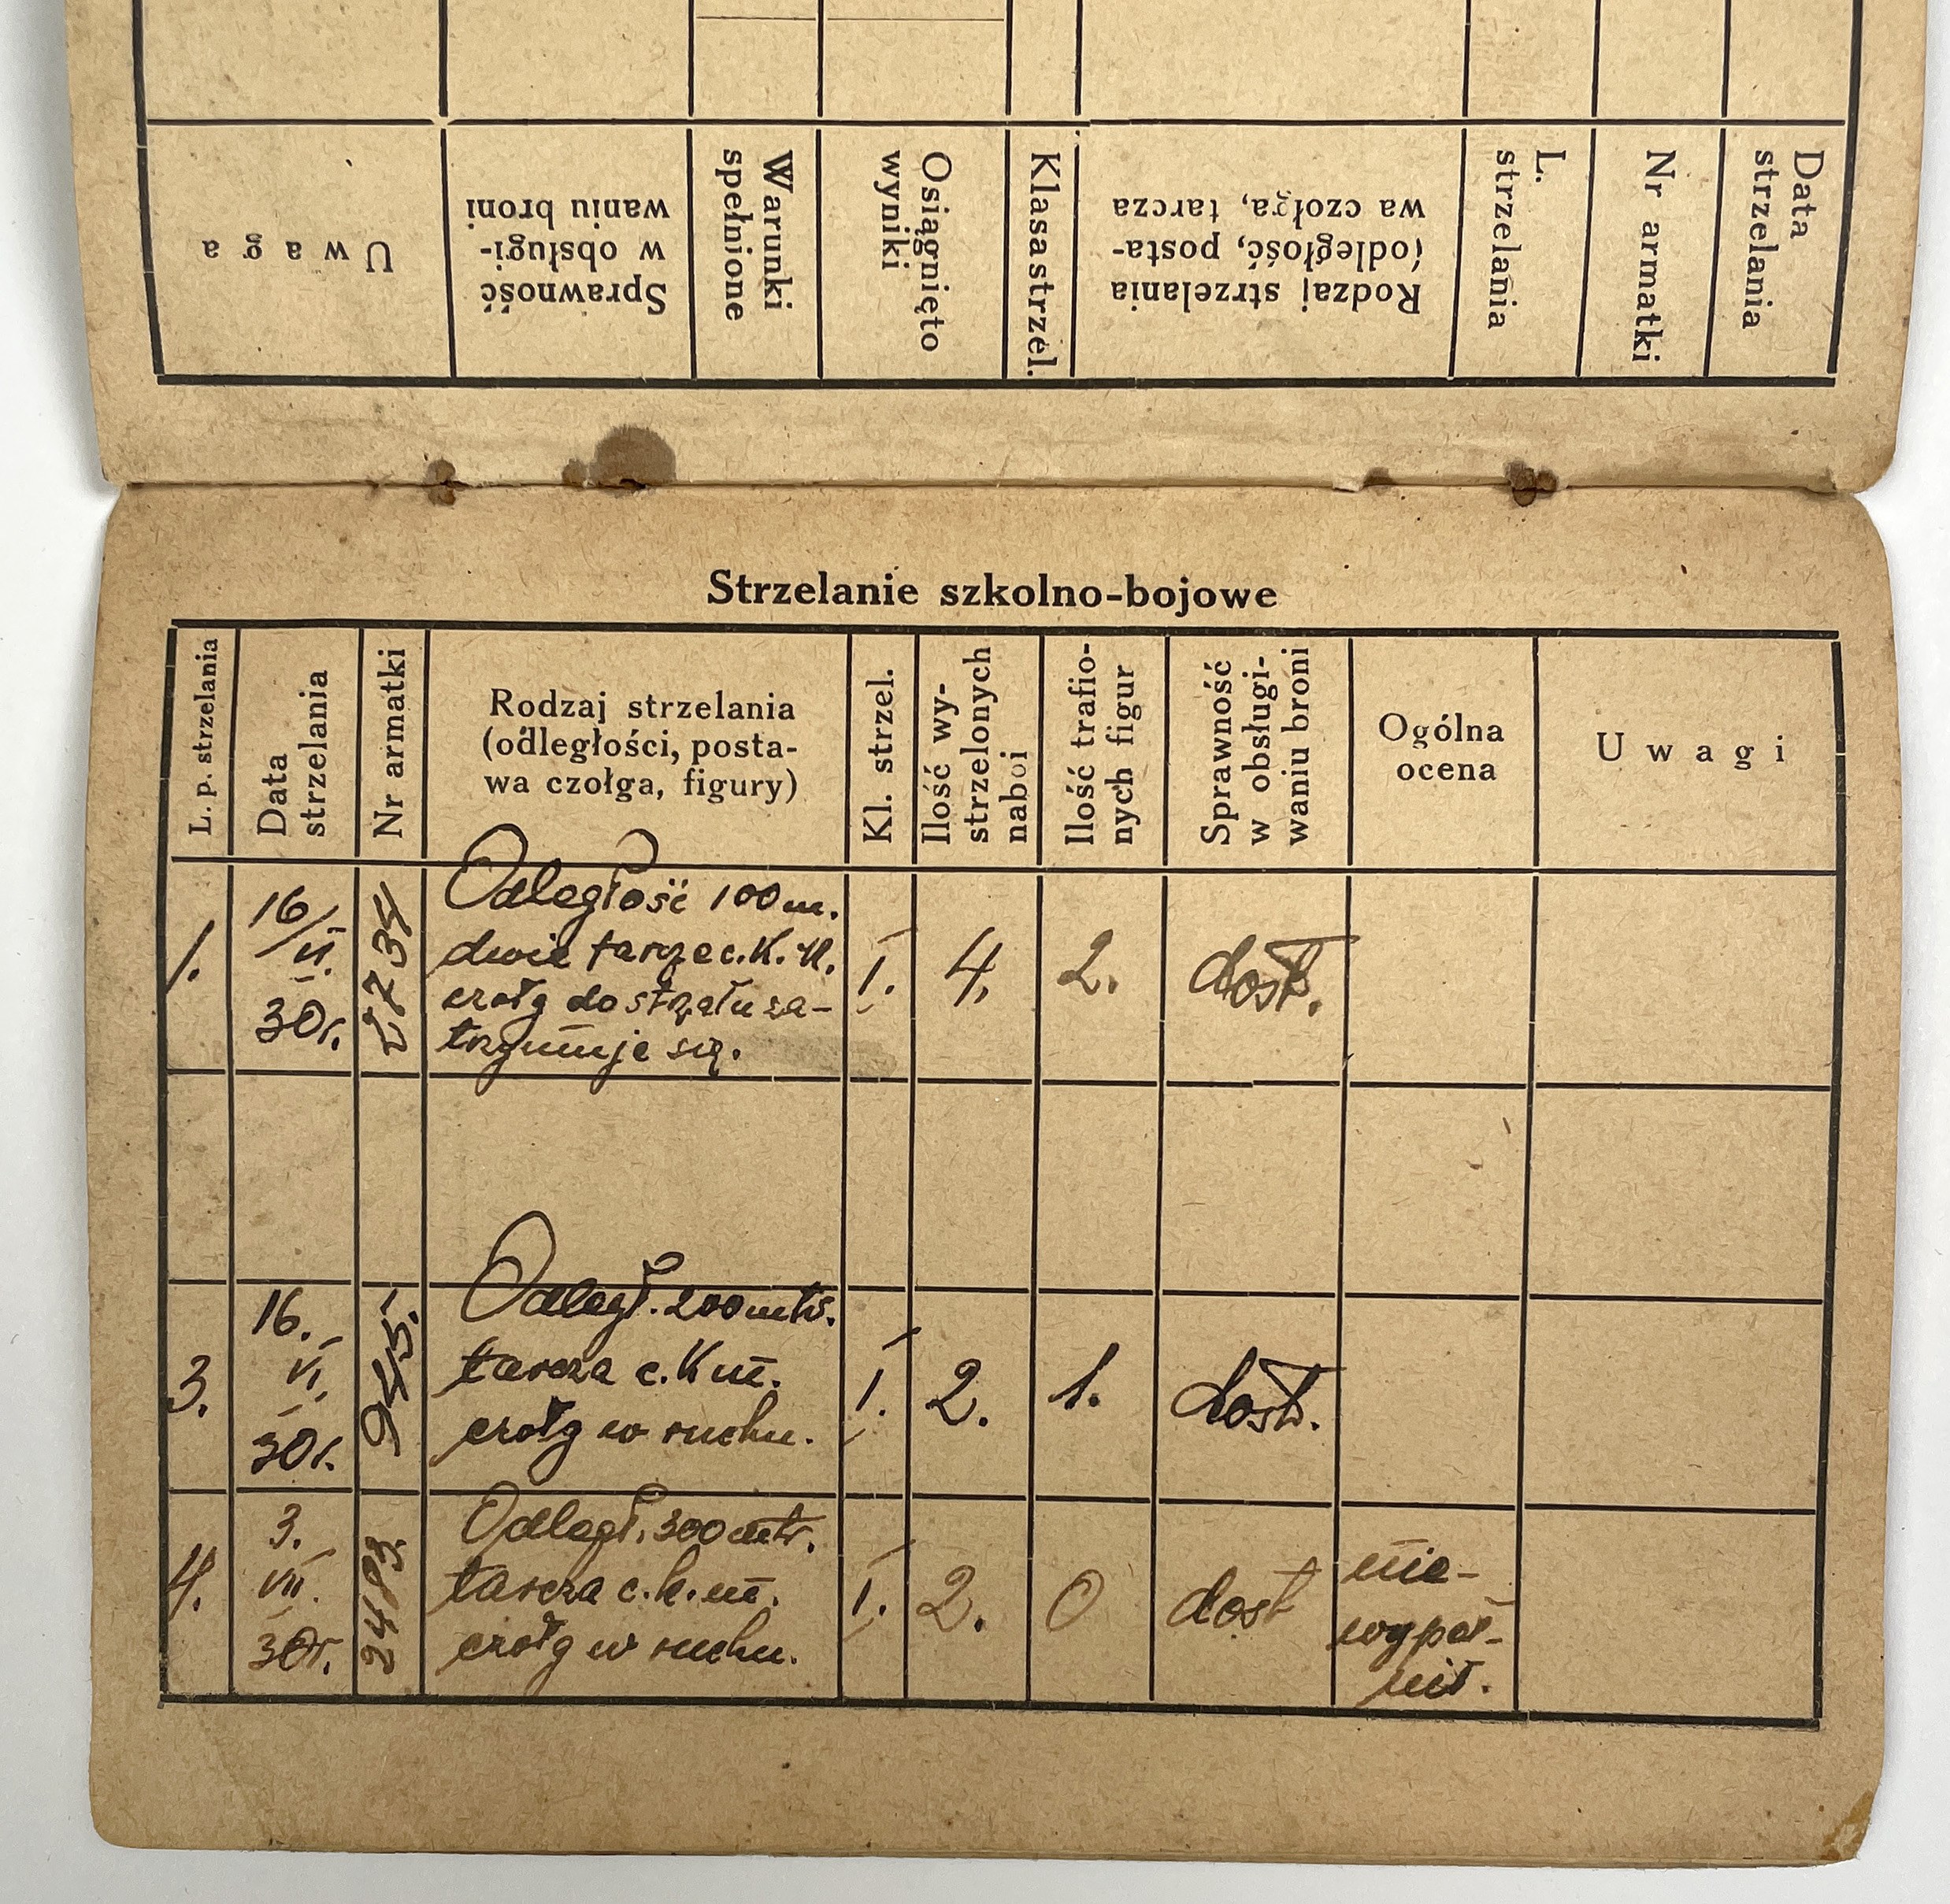 Data
strzelania
Nr armatki
L.
strzelania
Rodzaj strzelania
(odległość, posta-
wa czołga, tarcza
Klasa strzel.
Osiągnięto
wyniki
Warunki
spełnione
Sprawność
w obsługi-
waniu broni
Uwaga
Strzelanie szkolno-bojowe
L. p. strzelania
Data
strzelania
Nr armatki
Rodzaj strzelania
(odległości, posta-
wa czołga, figury)
Kl. strzel.
Ilość wy-
strzelonych
naboi
Ilość trafio-
nych figur
Sprawność
w obsługi-
waniu broni
Ogólna
ocena
Uwagi
1.
16/
VI.
30r.
2734
Odległość 100 m.
dwie tarcze c. K. M.
czołg do strzału za-
trzymuje się.
I.
4.
2.
dost.
3.
16.
VI.
30r.
945.
Odległ. 200 mtr.
tarcza c. K m.
czołg w ruchu.
I.
2.
1.
dost.
4.
3.
VII.
30r.
2483.
Odległ. 300 mtr.
tarcza c. k. m.
czołg w ruchu.
I.
2.
0
dost
nie-
wypeł-
nił.